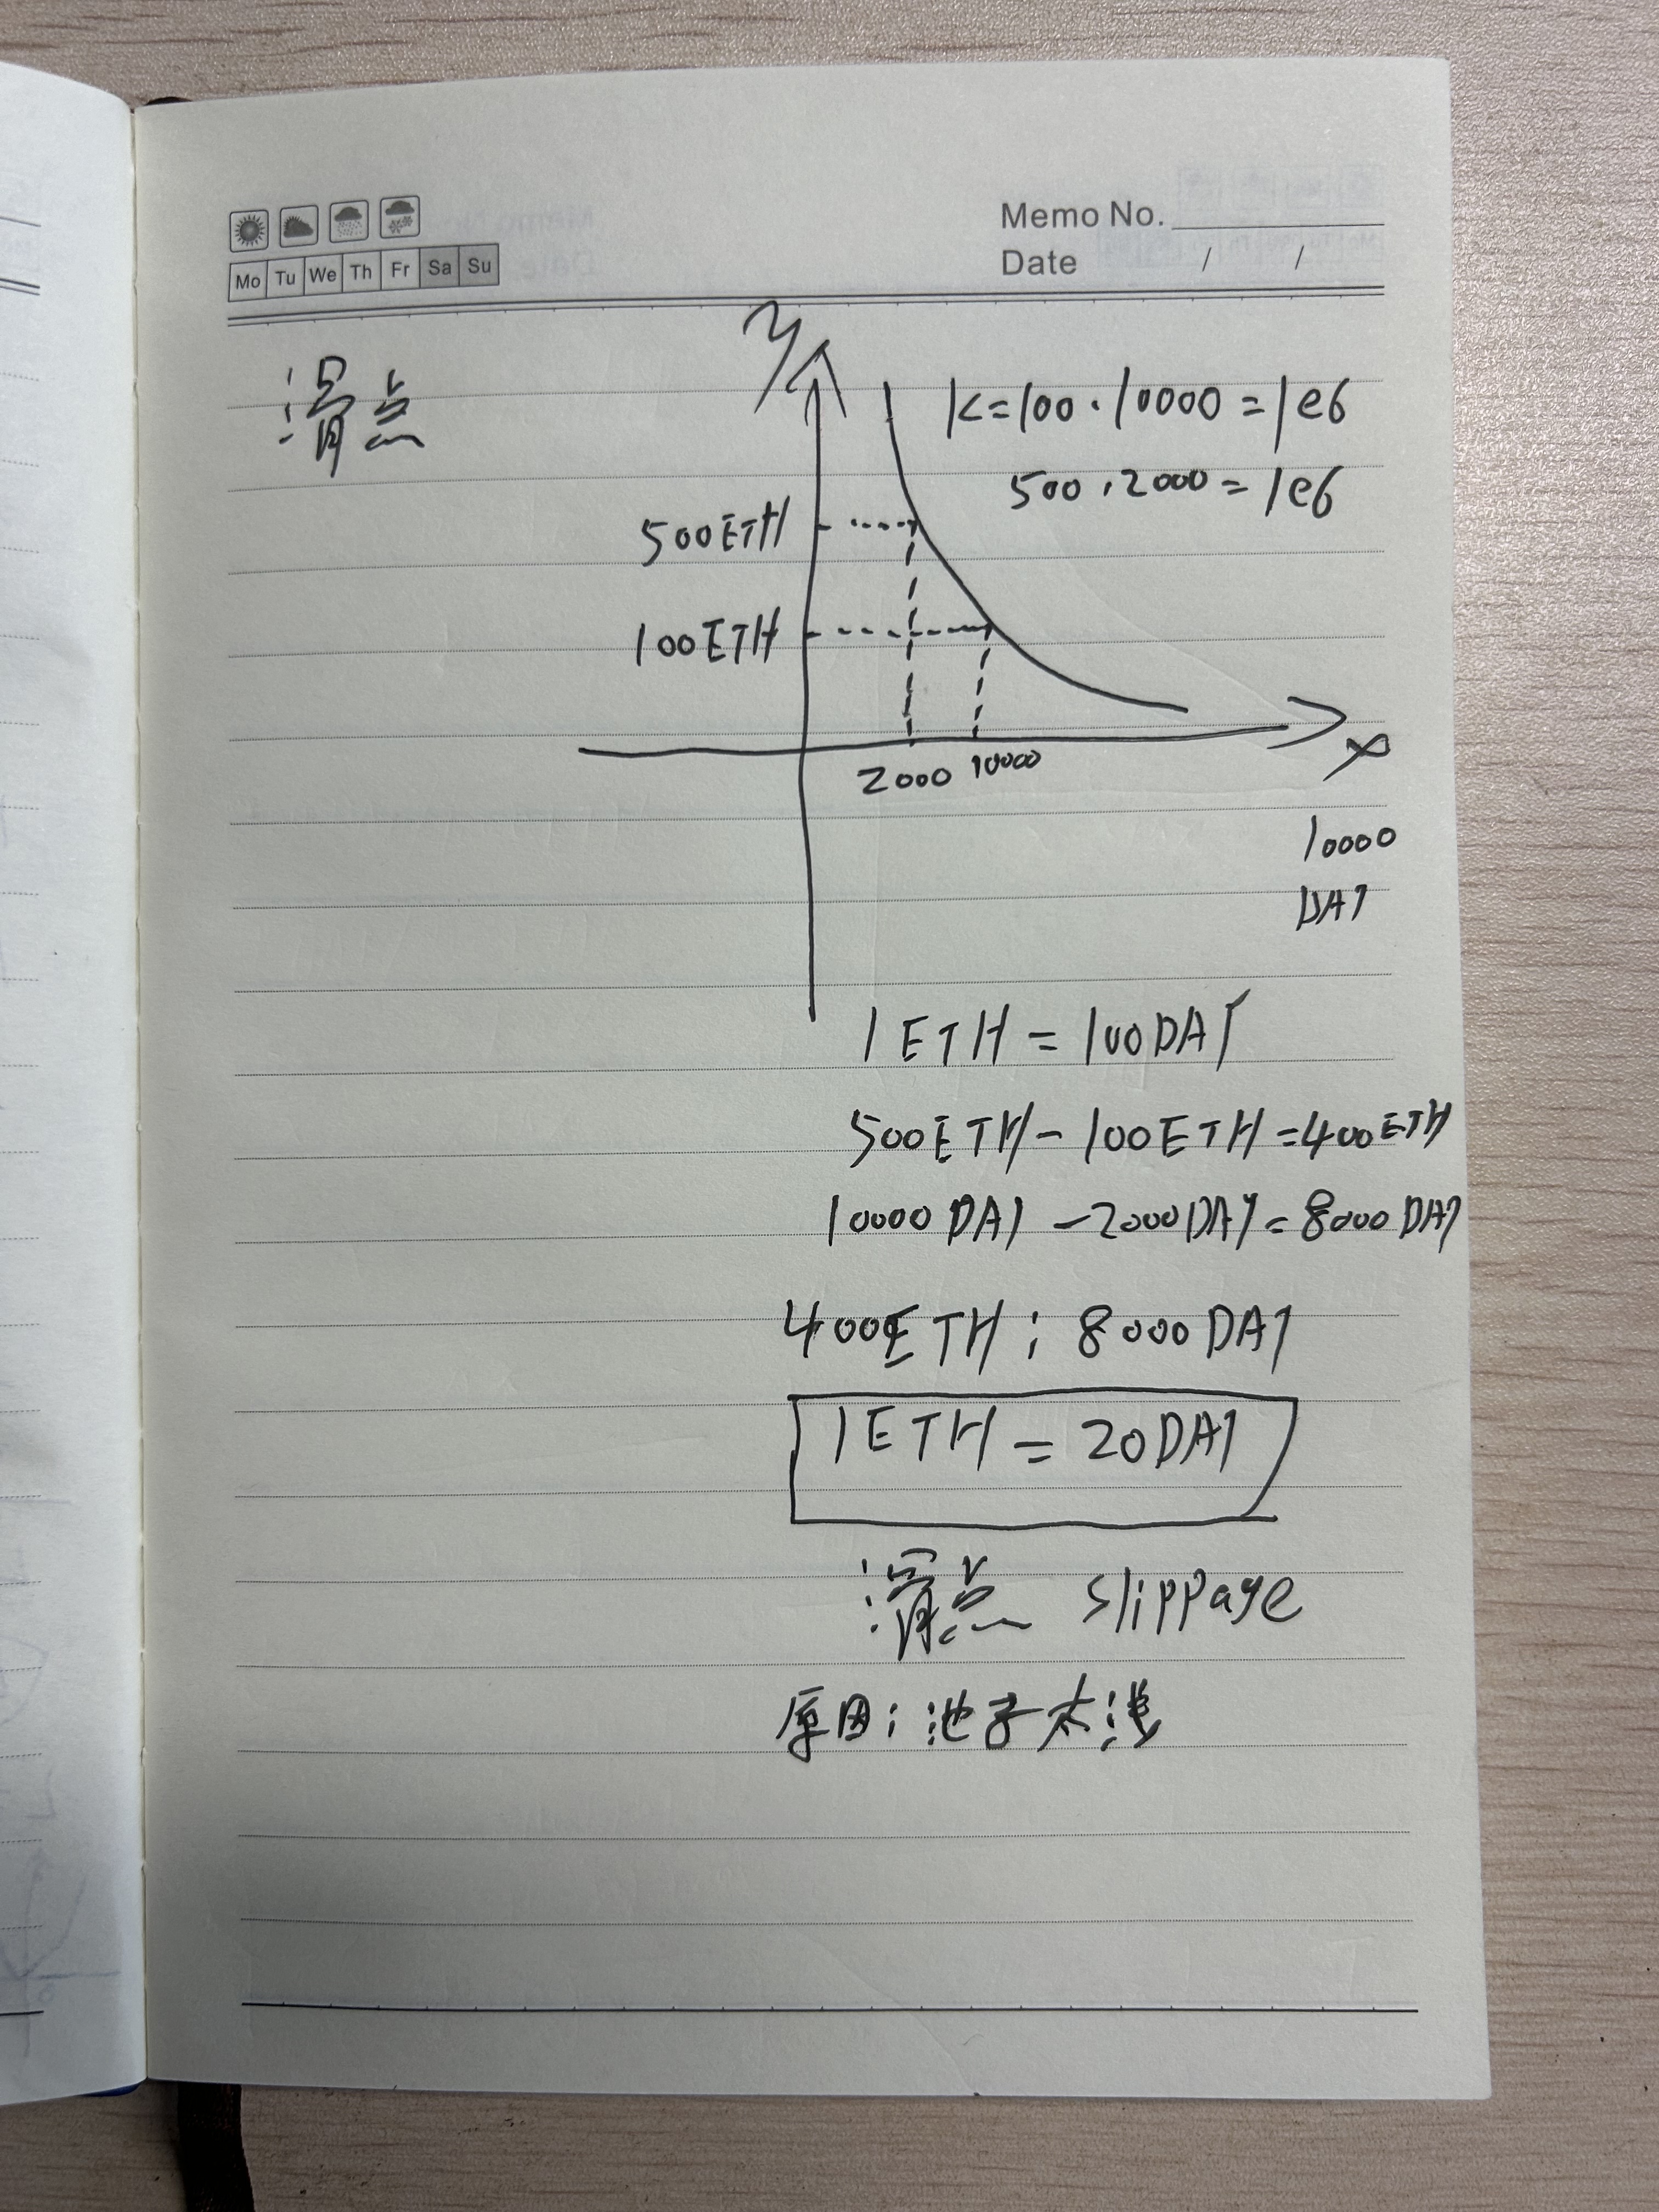 Memo No.
Mo Tu We Th Fr Sa Su
Date / /
滑点
y
K=100·10000=1e6
500·2000=1e6
500ETH
100ETH
2000 10000
x
10000
DAI
1ETH=100DAI
500ETH-100ETH=400ETH
10000DAI-2000DAI=8000DAI
400ETH:8000DAI
1ETH=20DAI
滑点 slippage
原因:池子太浅